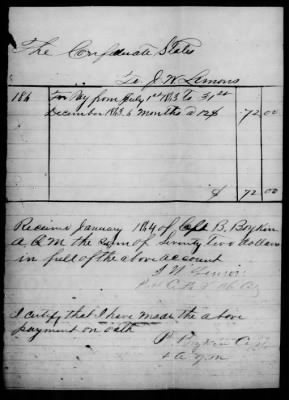 The Confederate States
To J. W. Lemons
186
For Pay from July 1st 1863 to 31st
December 1863 6 months @ 12$ 72 00
$ 72 00
Received January 1864 of Capt B. Boykin
A. Q. M. the sum of Seventy Two dollars
in full of the above account
J W Lemons
I certify that I have made the above
payment on oath
Boykin Capt
& A Q M